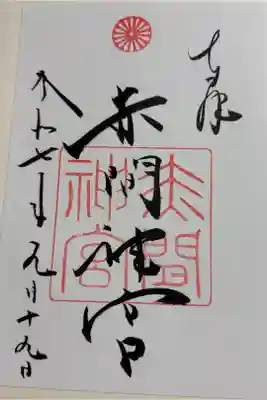 奉拝
赤間神宮
赤間
神宮
令和七年月十九日